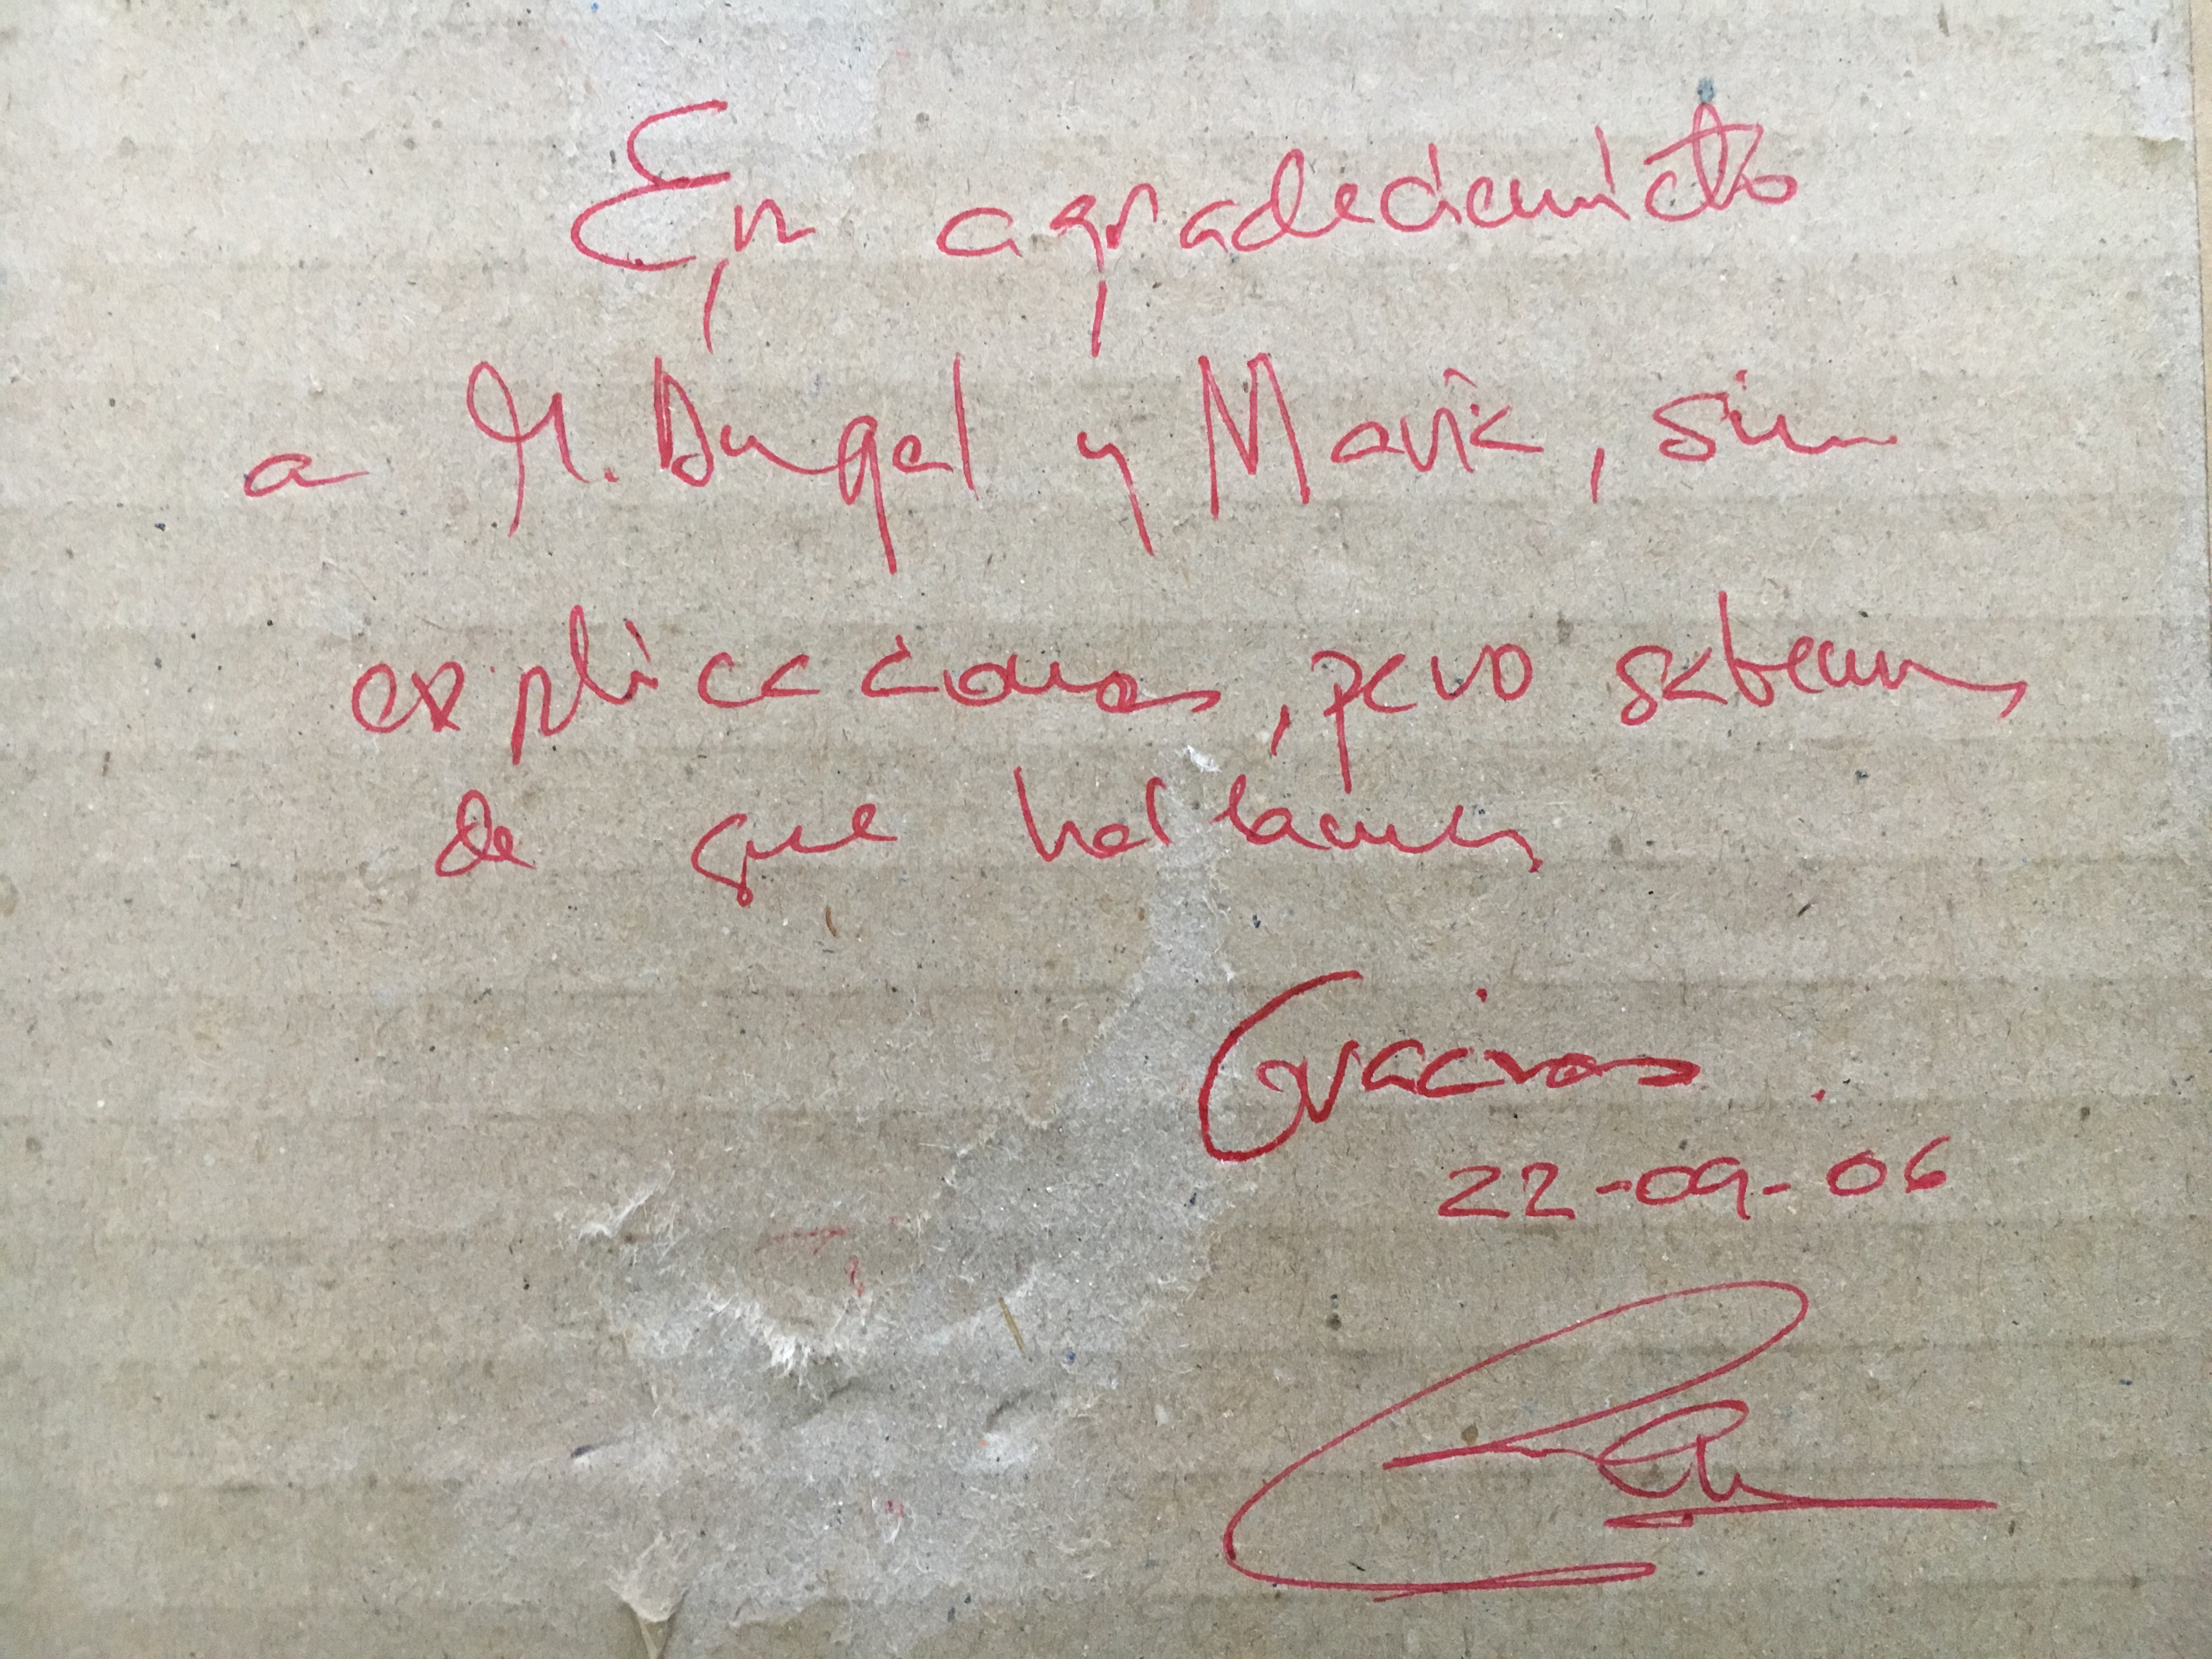 En agradecimiento
a M. Angel y Mavik, sin
explicaciones, pero sabemos
de que hablamos
Gracias.
22-09-06